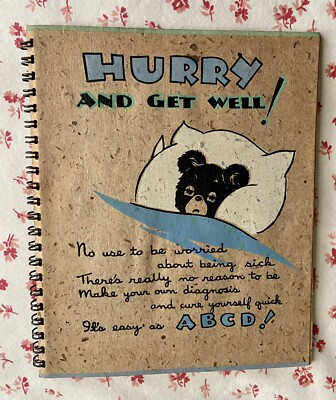 HURRY
AND GET WELL!
No use to be worried
about being sick
There's really no reason to be
Make your own diagnosis
and cure yourself quick
It's easy as ABCD!